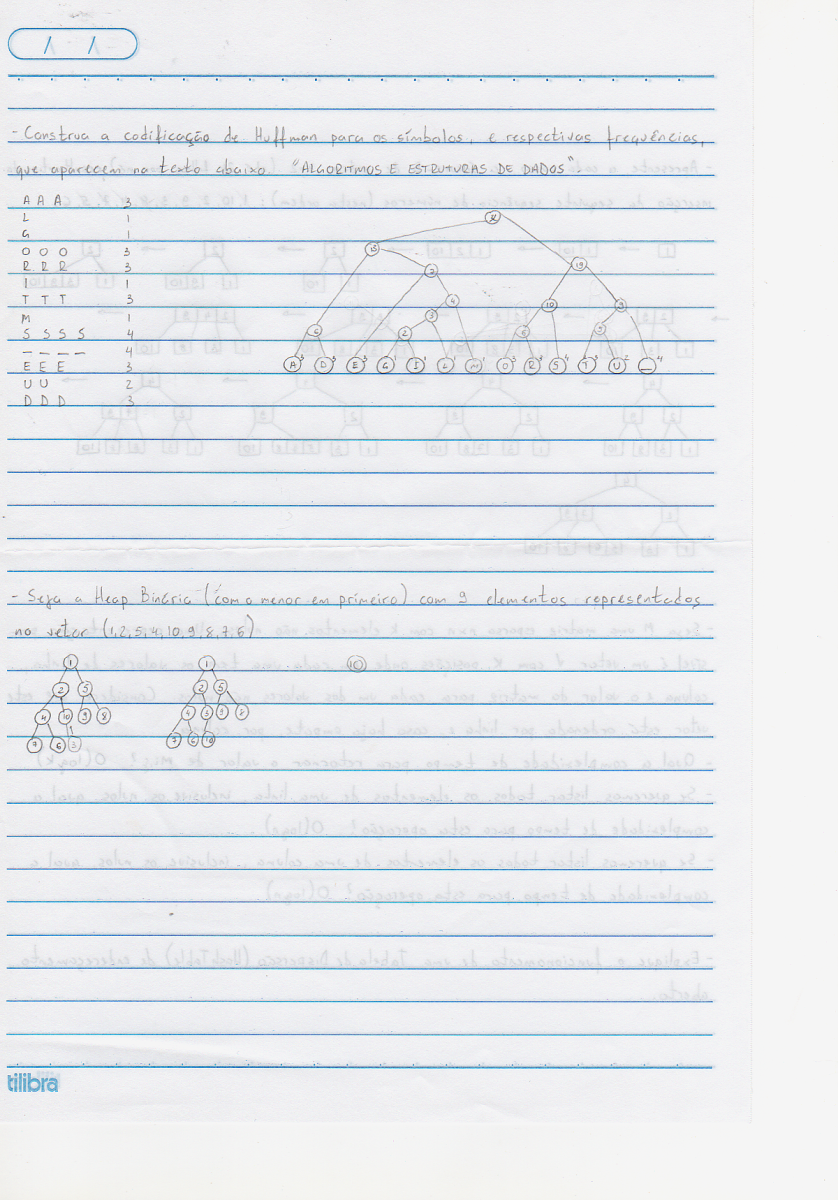 / /
- Construa a codificação de Huffman para os símbolos, e respectivas frequências,
que aparecem no texto abaixo "ALGORITMOS E ESTRUTURAS DE DADOS".
A A A 3
L 1
G 1
O O O 3
R R R 3
I 1
T T T 3
M 1
S S S S 4
_ _ _ _ 4
E E E 3
U U 2
D D D 3
15 19
7
4 10 9
6 3 2 6 5
A 3 D 3 E 3 G 1 I 1 L 1 M 1 O 3 R 3 S 4 T 3 U 2 _ 4
- Seja a Heap Binária (com o menor em primeiro) com 9 elementos representados
no vetor (1,2,5,4,10,9,8,7,6)
1 1 10
2 5 2 5
4 10 9 8 4 3 9 8
7 6 3 7 6 10
tilibra